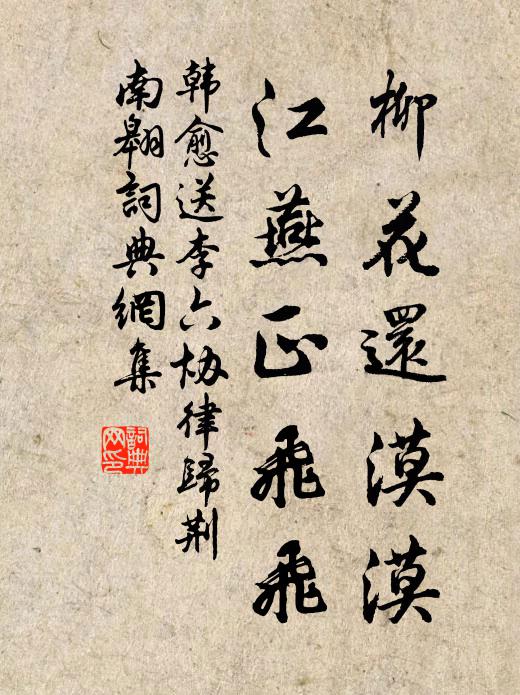 柳花還漠漠
江燕正飛飛
韩愈送李六协律歸荆
南翱詞典網集
詞典网印